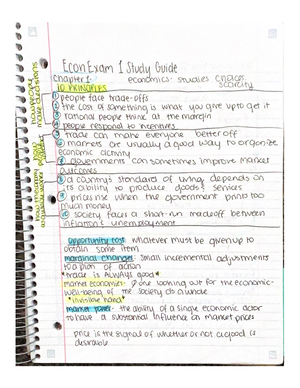 Econ Exam 1 Study Guide
chapter 1
economics - studies choices
scarcity
10 PRINCIPLES
1 people face trade-offs
2 the cost of something is what you give up to get it
3 rational people think at the margin
4 people respond to incentives
5 trade can make everyone better off
6 markets are usually a good way to organize
economic activity
7 governments can sometimes improve market
outcomes
8 a country's standard of living depends on
its ability to produce goods & services
9 prices rise when the government prints too
much money
10 society faces a short-run tradeoff between
inflation & unemployment
opportunity cost: whatever must be given up to
obtain some item
marginal changes: small incremental adjustments
to a plan of action
*trade is ALWAYS good*
market economies: no one looking out for the economic
well-being of the society as a whole
"invisible hand"
market power - the ability of a single economic actor
to have a substantial influence on market prices
price is the signal of whether or not a good is
desirable
how people make decisions